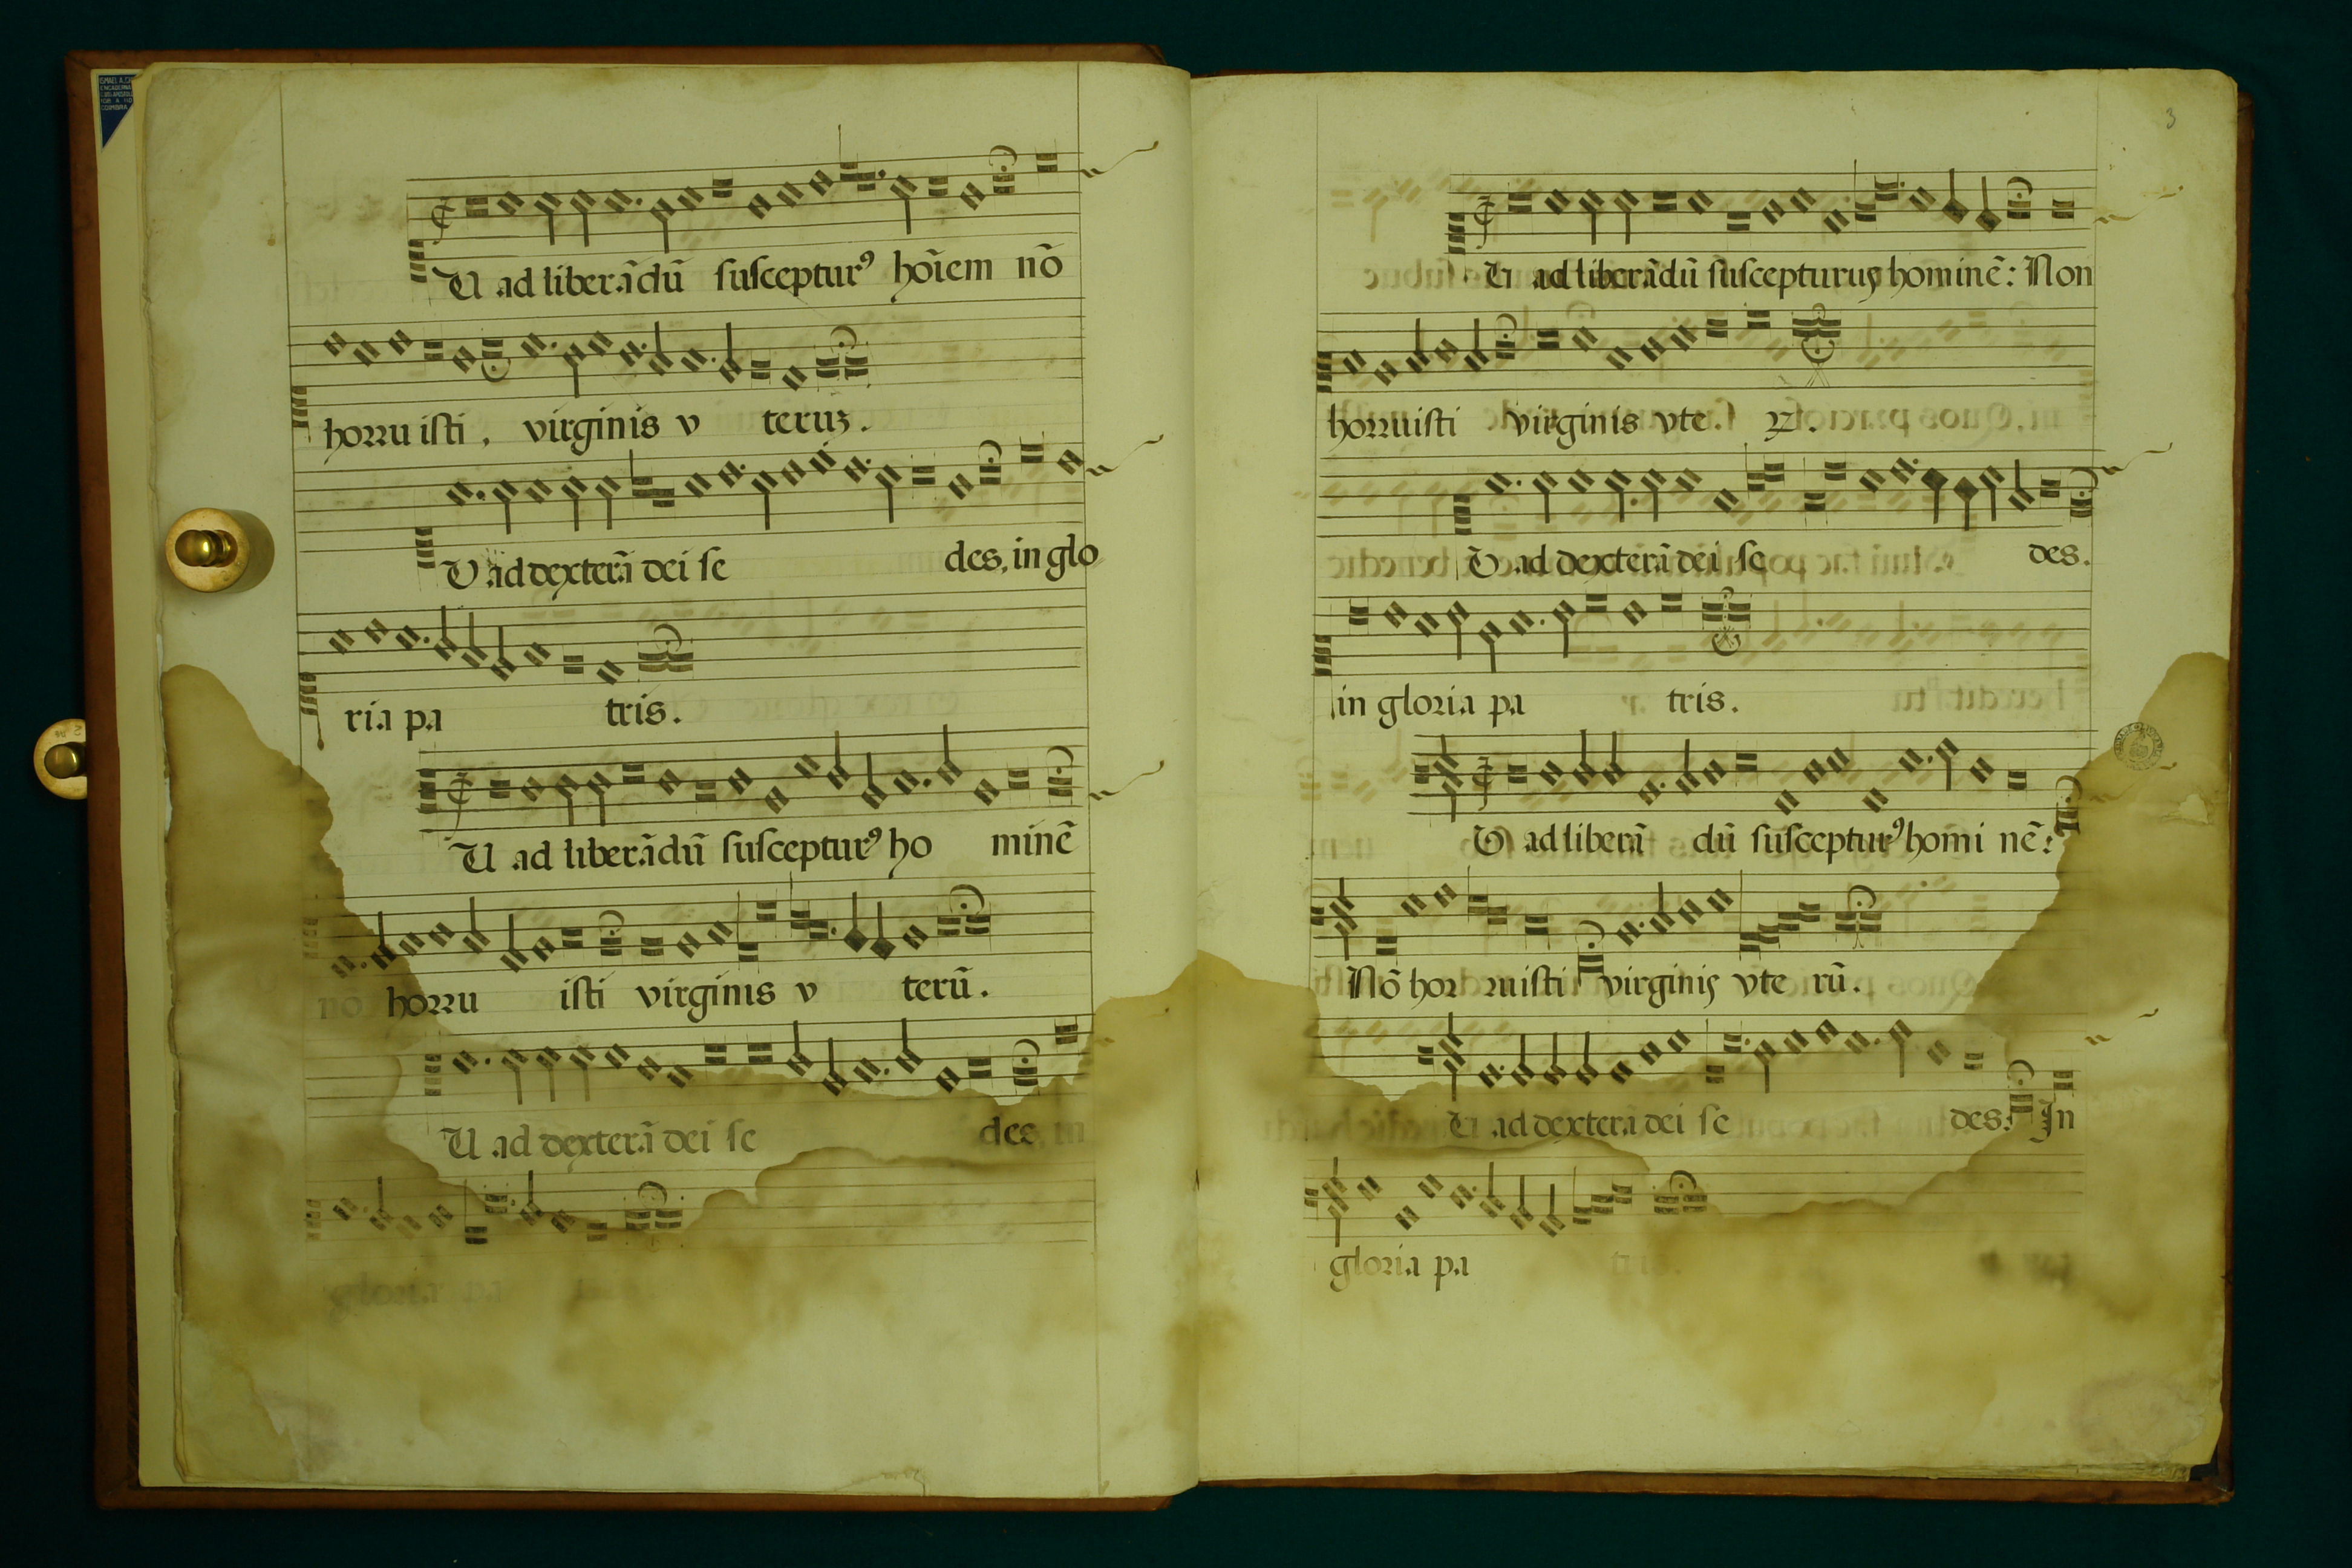 U ad liberādū suscepturꝰ hoīem nō
horruisti, virginis v teruʒ.
U ad dexterā dei se des, in glo
ria pa tris.
U ad liberādū suscepturꝰ ho minē
nō horru isti virginis v terū.
U ad dexterā dei se des, in
gloria pa tris
3
U ad liberādū suscepturus hominē: Non
horruisti virginis vte ꝝ.
U ad dexterā dei se des.
in gloria pa tris.
U ad liberā dū suscepturꝰ homi nē:
Nō hor ruisti virginis vte rū.
U ad dexterā dei se des: In
gloria pa tris.